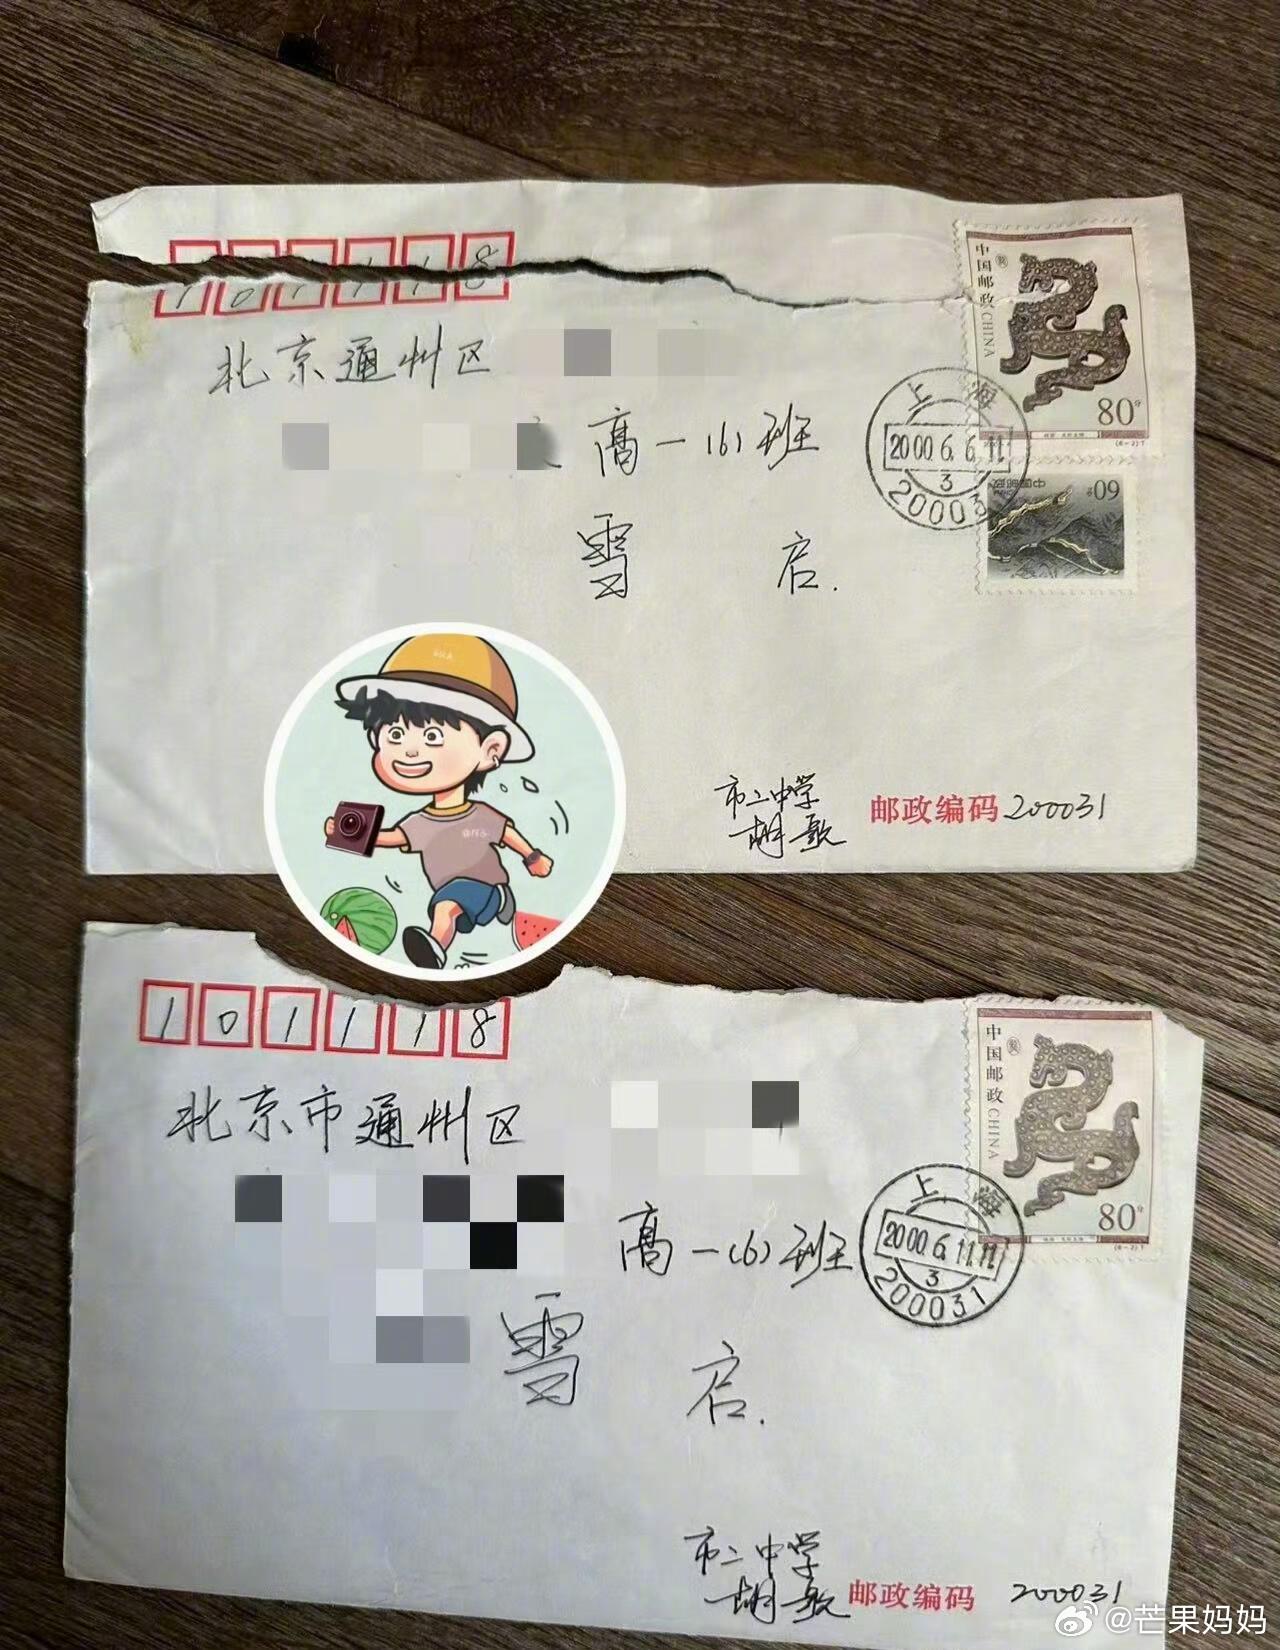 101118
北京通州区
高一(6)班
雪 启.
中国邮政CHINA
80分
(6-2)T
上海
2000.6.6.11
3
20003
中国邮政
60分
市二中学
胡歌
邮政编码 200031
101118
北京市通州区
高一(6)班
雪 启.
中国邮政CHINA
80分
(6-2)T
上海
2000.6.11.11
3
200031
市二中学
胡歌
邮政编码 200031
@芒果妈妈